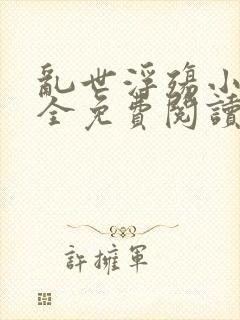 亂世浮殤小
全免費閱讀
許擁軍